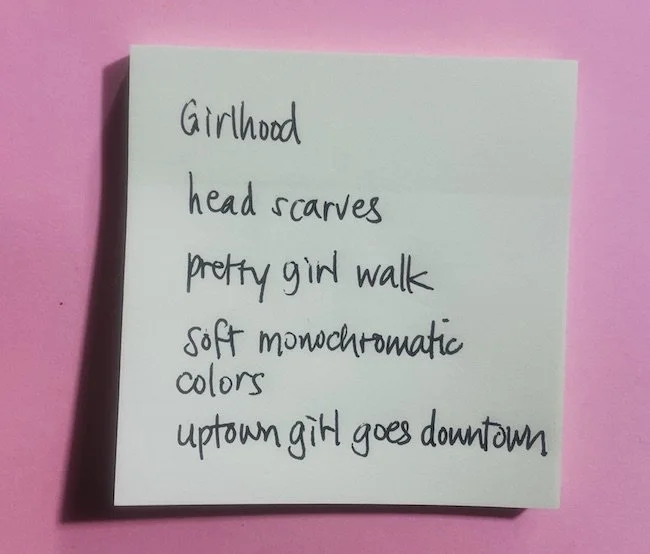 Girlhood
head scarves
pretty girl walk
soft monochromatic
colors
uptown girl goes downtown